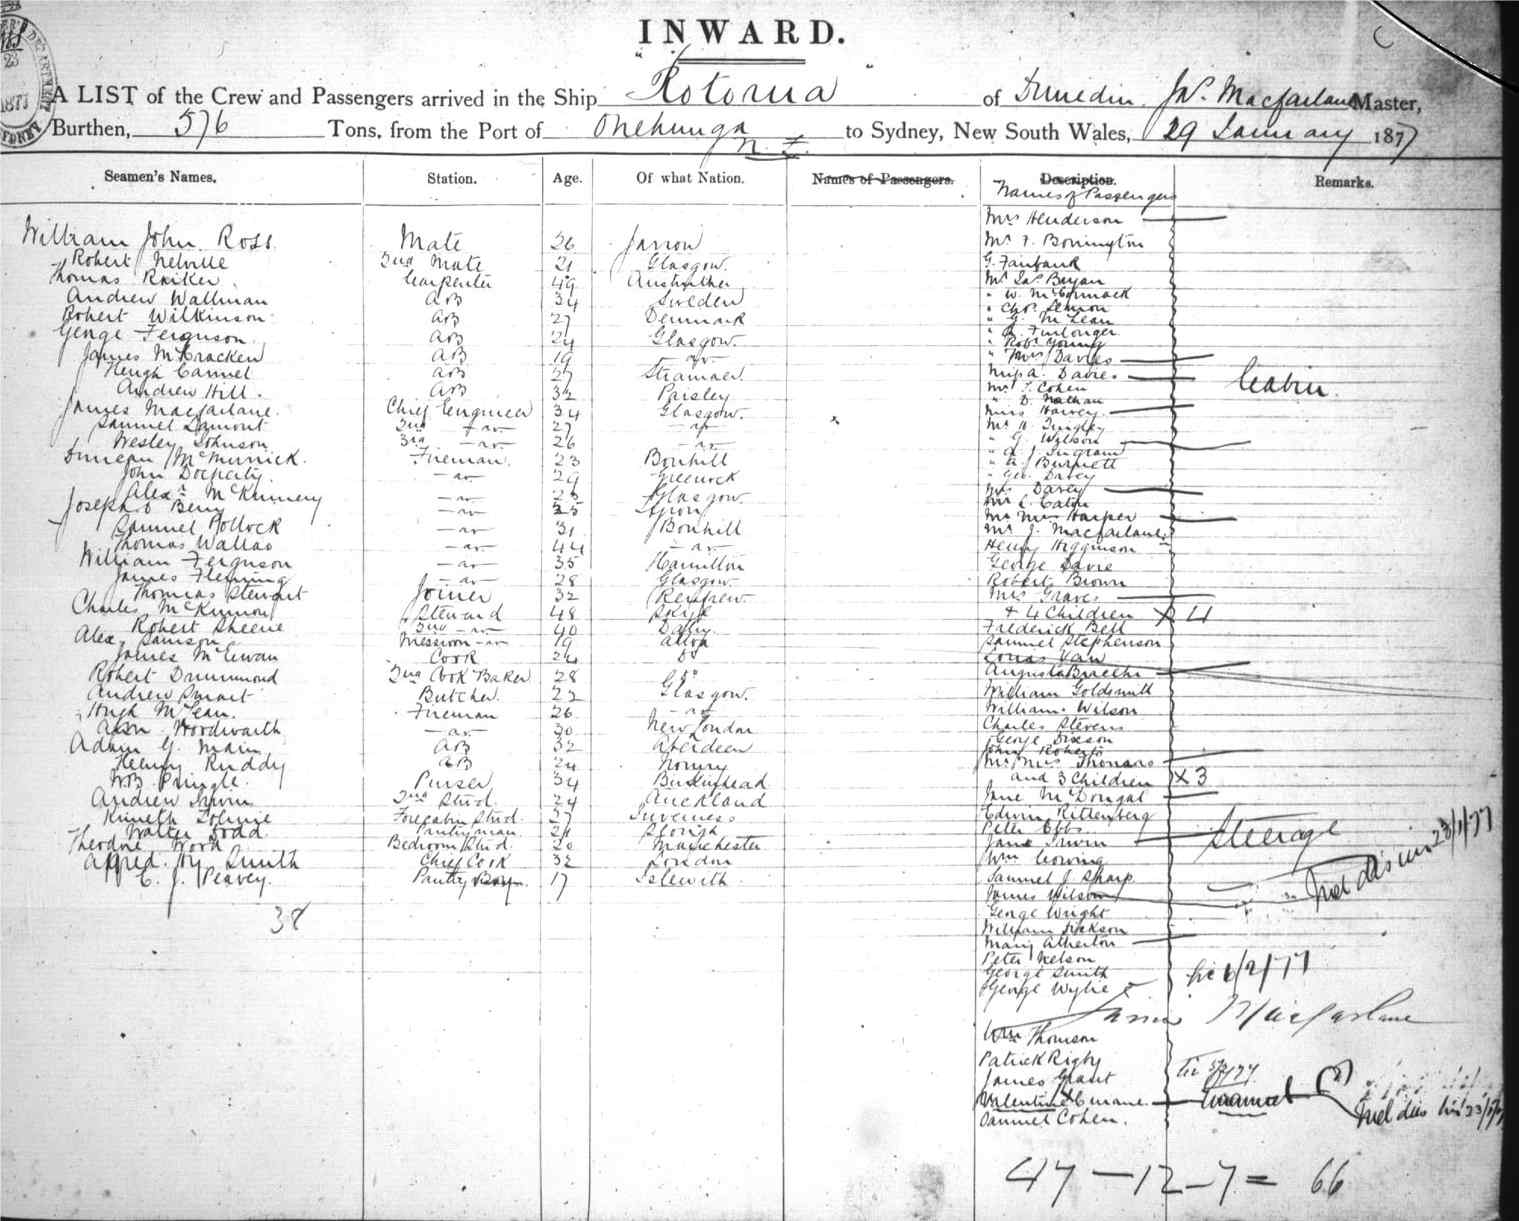 INWARD.
A LIST of the Crew and Passengers arrived in the Ship " Rotorua " of Dunedin, Jas. Macfarlane Master,
Burthen, 576 Tons, from the Port of Onehunga N Z to Sydney, New South Wales, 29 January 1877
Seamen's Names. Station. Age. Of what Nation. Names of Passengers. Description. Remarks.
Names of Passengers
Mrs Henderson
William John Ross Mate 26 Jarrow Mr F. Bonnington
Robert Nelville 2nd Mate 21 Glasgow. G. Fairbank
Thomas Raiker Carpenter 49 Mr Jas Bryan
Andrew Wallman AB 34 Sweden " W. McCormack
Robert Wilkinson AB 27 Denmark " Chas Lennon
" G. McLean
George Ferguson AB 24 Glasgow. " Furlonger
" Robt Young
James McCracken AB 19 do " Mrs Davies
Hugh Cannel AB 27 Stranraer Miss A. Davies Cabin
Andrew Hill. AB 32 Paisley Mr S. Cohen
" D. Nathan
James Macfarlane. Chief Engineer 34 Glasgow. Miss Harvey
Samuel Lamont 2nd do 27 do Mr Tingley
Wesley Johnson 3rd do 26 do " G. Wilson
" A. J. Ingram
Duncan McMurrick. Fireman. 23 Bonhill " Burnett
John Docherty. do 29 Greenock " Geo. Davey
Alexr McKinnery do 23 Glasgow Mrs Davey
Joseph Berry do 25 Mr C. Eaton
Samuel Pollock do 31 Bonhill Mr Mrs Harper
Mr J. Macfarlane
Thomas Wallas do 44 do Henry Higginson
William Ferguson do 35 Hamilton George Davie
James Fleming do 28 Glasgow Robert Brown
Thomas Stewart Joiner 32 Renfrew Mrs Graves
Charles McKinnon Steward 48 Skye + 4 Children X 4
Robert Skeene 2nd do 40 Dalry Frederick Bell
Alex Samson Messroom do 19 Alloa Samuel Stephenson
James McEwan Cook 24 do Louis Van
Robert Drummond 2nd Cook Baker 28 do Augusta
Andrew Smart Butcher 22 Glasgow. William Goldsmith
Hugh McLean. Fireman 26 do William Wilson
Woodwarth do 30 New London Charles Stevens
Adam G. Main AB 32 Aberdeen George Dixson
John Roberts
Henry Ruddy AB 24 Mr Mrs Thomas
WB Pringle. Purser 34 Birkenhead and 3 Children X 3
Andrew Irwin 2nd Stwd. 24 Auckland Jane McDougal
Forecabin Stwd. 27 Inverness Edwin Rittenberg
Walter Dodd. Pantryman 21 Slough Peter Ebbs Steerage
Theodore Wood Bedroom Stwd. 20 Manchester Jane Irwin
Alfred. Hy. Smith Chief Cook 32 London Wm Cowing 23/1/77
C. J. Peavey. Pantry Boy 17 Isleworth Samuel J Sharp
James Wilson
38 George Wright
William Dickson
Mary Atherton
Peter Nelson
George Smith 6/2/77
George Wylie
James Macfarlane
Wm Thomson
Patrick Rigby
James Grant
Valentine
Samuel Cohen.
47 — 12 — 7 = 66